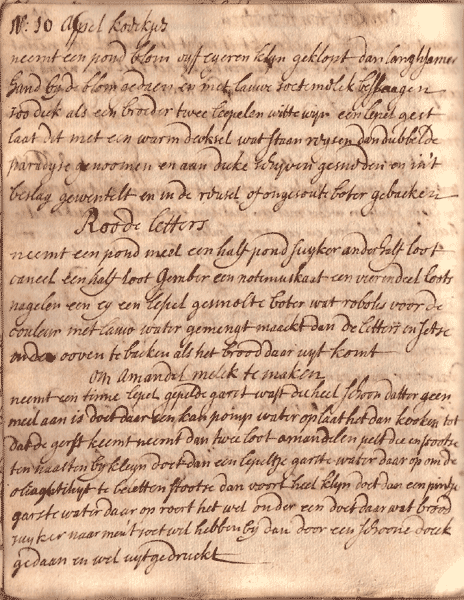 N: 10 Appel koeckjes
neemt een pond blom vijf eyeren klyn geklopt dan langhsamer
hand by de blom gedaen en met lauwe soete melck beslaagen
soo dick als een broeder twee leepelen witte wyn een lepel gest
laat dit met een warm decksel wat staan rysen dan dubbelde
paradyse genoomen en aan dicke schyven gesneden en in't
beslag gewentelt en in de reusel of ongesoute boter gebacken
Roode letters
neemt een pond meel een half pond suyker anderhalf loot
caneel een half loot Gember een notemuskaat een vierendeel loots
nagelen een ey een lepel gesmolte boter wat voor de
couleur met lauw water gemengt maeckt dan de letters en setse
in de ooven te backen als het brood daar uyt komt
om Amandel melck te maken
neemt een tinne lepel gepelde garst wast die heel schoon datter geen
meel aan is doet daar een kan pomp water op laat het dan kooken tot
dat de gerst neemt dan twee loot amandelen pelt die en stootse
ten halven by kleyn doet dan een lepeltje garste water daar op om de
te beletten stootse dan voort heel klyn doet dan een pintje
garste water daar op roert het wel onder een doet daar wat brood
suyker naar men't soet wil hebben by dan door een schoone doeck
gedaan en wel uytgedruckt